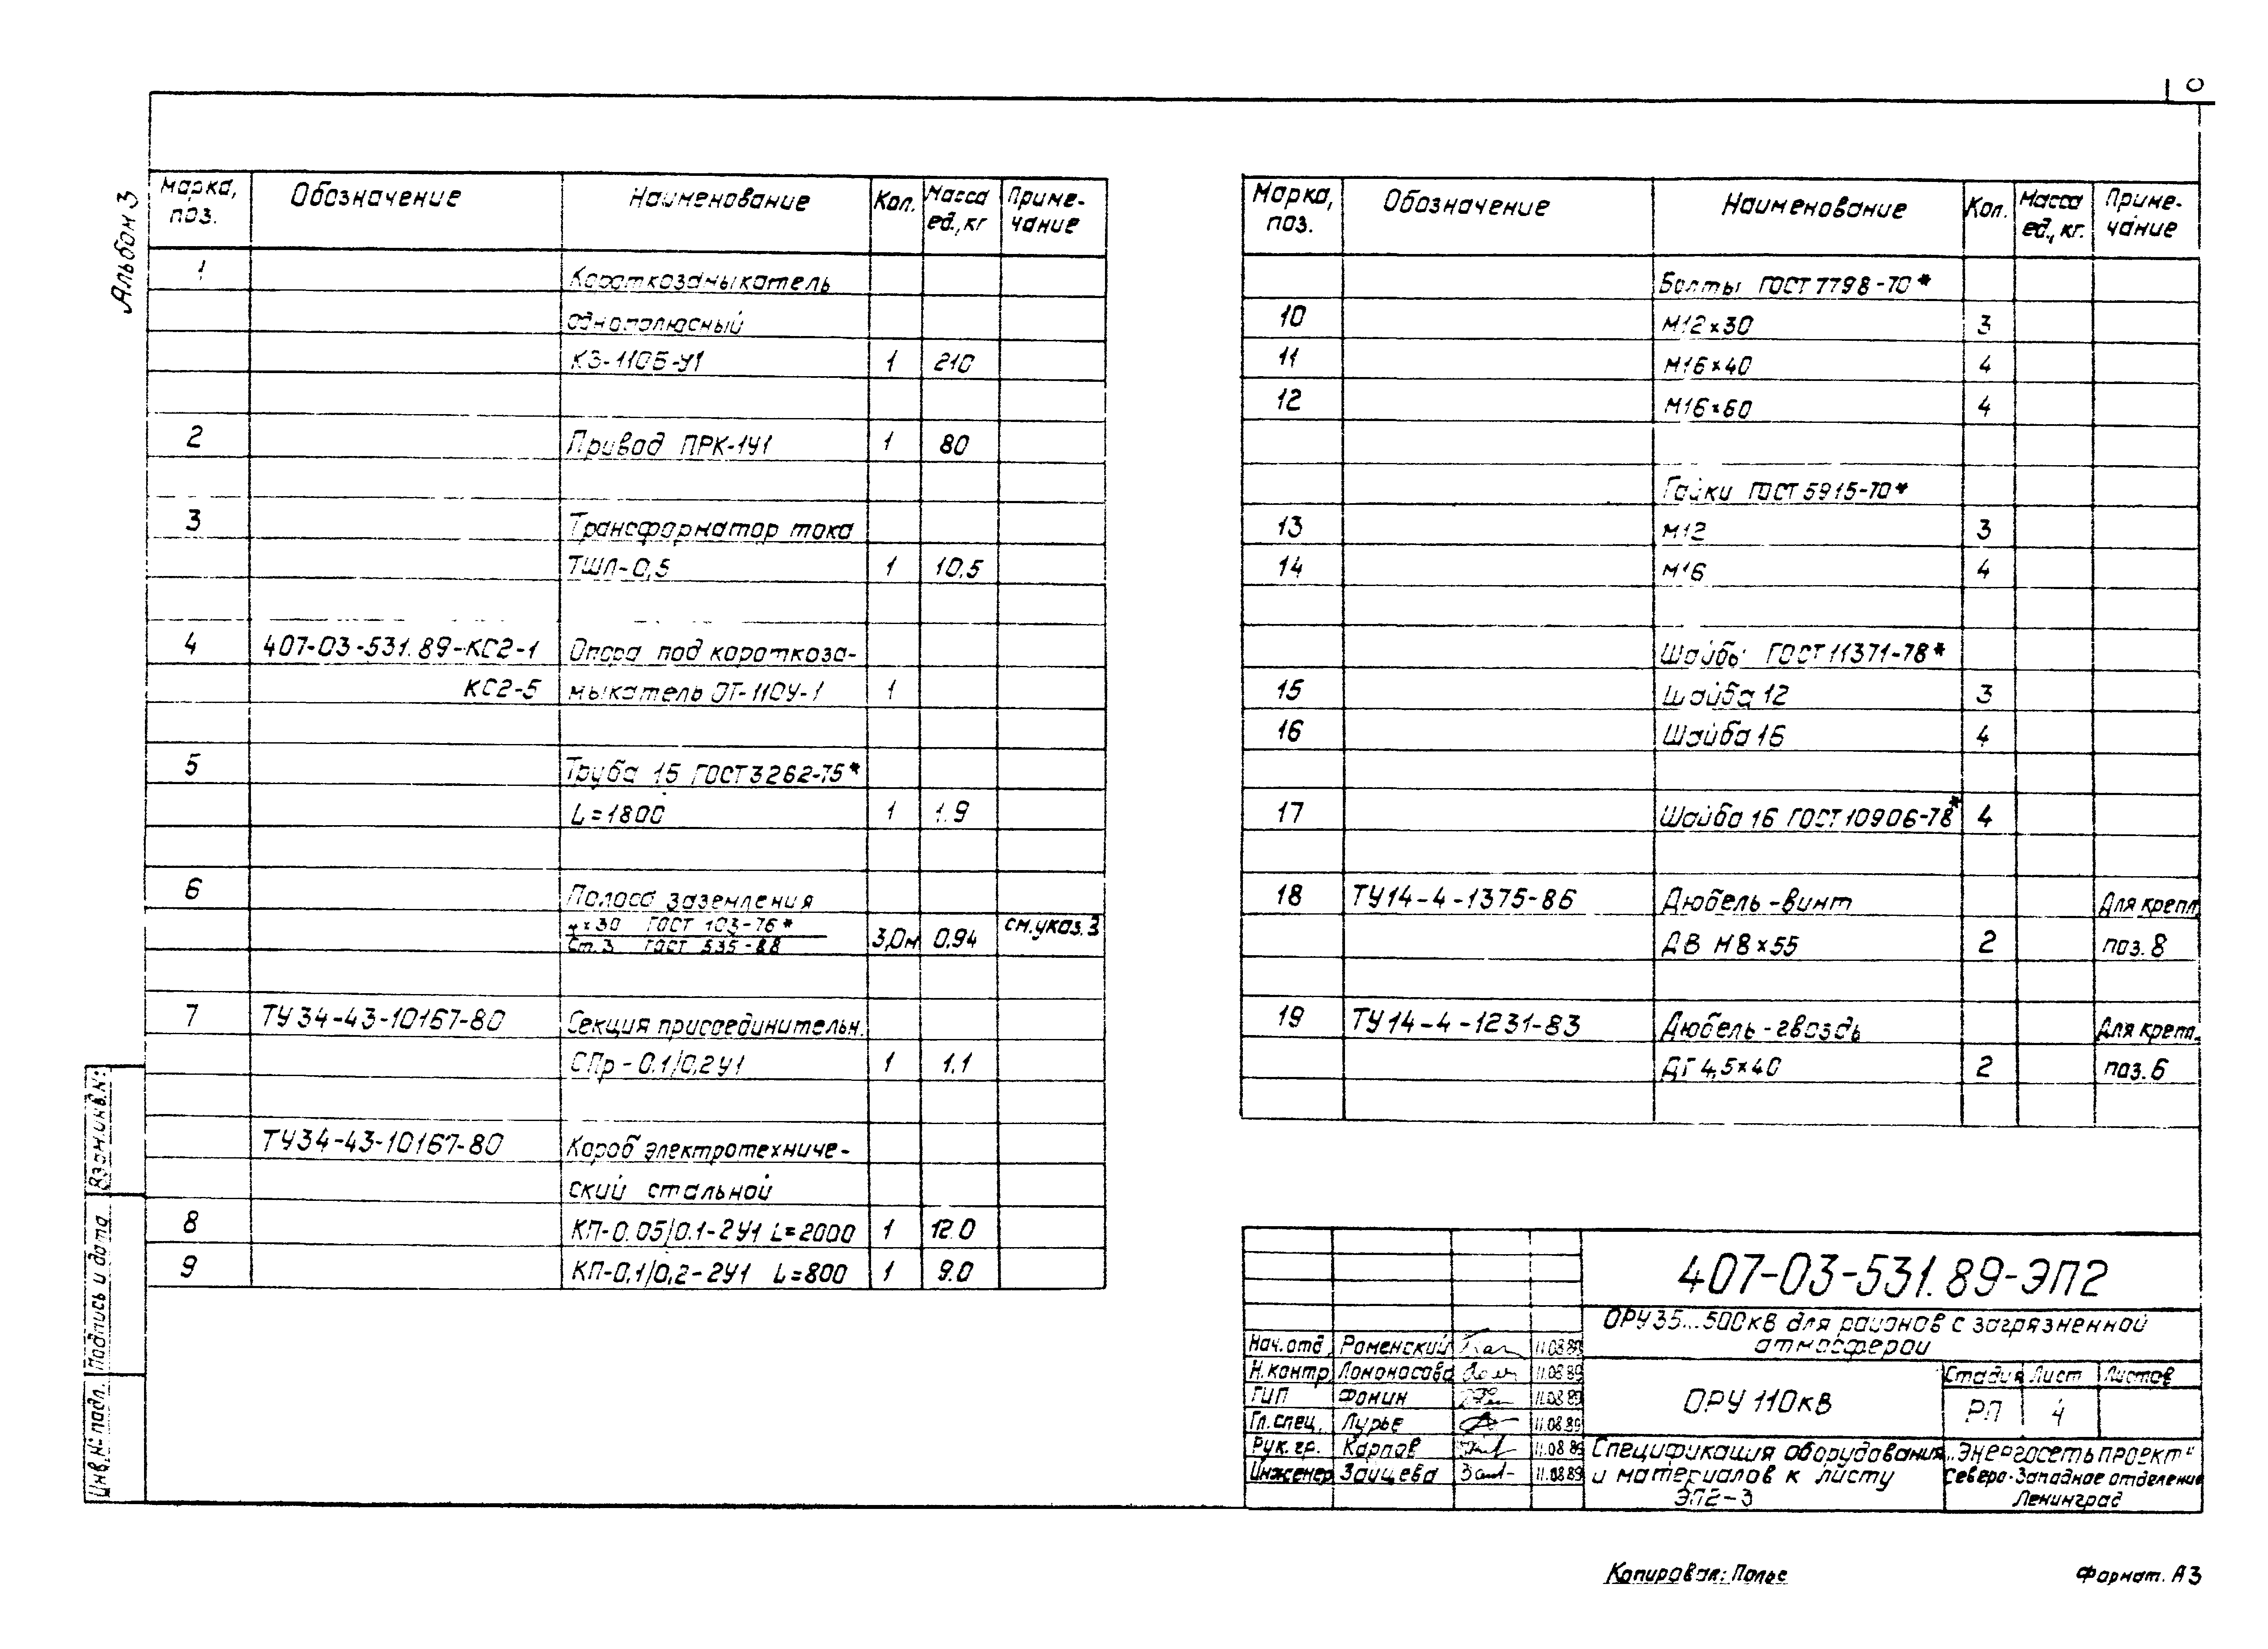 Альбом 3
Марка, поз. Обозначение Наименование Кол. Масса ед., кг Приме-чание
1 Короткозамыкатель
однополюсный
КЗ-110Б-У1 1 210
2 Привод ПРК-1У1 1 80
3 Трансформатор тока
ТШЛ-0,5 1 10,5
4 407-03-531.89-КС2-1 Опора под короткоза-
КС2-5 мыкатель ОТ-110У-1 1
5 Труба 15 ГОСТ 3262-75*
L=1800 1 1.9
6 Полоса заземления
4×30 ГОСТ 103-76*
Ст.3 ГОСТ 535-88 3,0м 0.94 см.указ.3
7 ТУ34-43-10167-80 Секция присоединительн.
СПр-0.1/0,2У1 1 1.1
ТУ34-43-10167-80 Короб электротехниче-
ский стальной
8 КП-0.05/0.1-2У1 L=2000 1 12.0
9 КП-0,1/0,2-2У1 L=800 1 9.0
Марка, поз. Обозначение Наименование Кол. Масса ед., кг. Приме-чание
Болты ГОСТ 7798-70*
10 М12×30 3
11 М16×40 4
12 М16×60 4
Гайки ГОСТ 5915-70*
13 М12 3
14 М16 4
Шайбы ГОСТ 11371-78*
15 Шайба 12 3
16 Шайба 16 4
17 Шайба 16 ГОСТ 10906-78* 4
18 ТУ14-4-1375-86 Дюбель-винт Для крепл.
ДВ М8×55 2 поз. 8
19 ТУ14-4-1231-83 Дюбель-гвоздь Для крепл.
ДГ 4,5×40 2 поз. 6
Взам.инв.№
Подпись и дата
Инв.№ подл.
407-03-531.89-ЭП2
ОРУ35...500кВ для районов с загрязненной
атмосферой
Нач.отд. Роменский 11.08.89
Н.контр. Ломоносова 11.08.89
ГИП Фомин 11.08.89
Гл.спец. Лурье 11.08.89
Рук.гр. Карпов 11.08.89
Инженер Зайцева 11.08.89
ОРУ 110кВ
Стадия Лист Листов
РП 4
Спецификация оборудования
и материалов к листу
ЭП2-3
„Энергосетьпроект"
Северо-Западное отделение
Ленинград
Копировал: Полье
Формат. А3